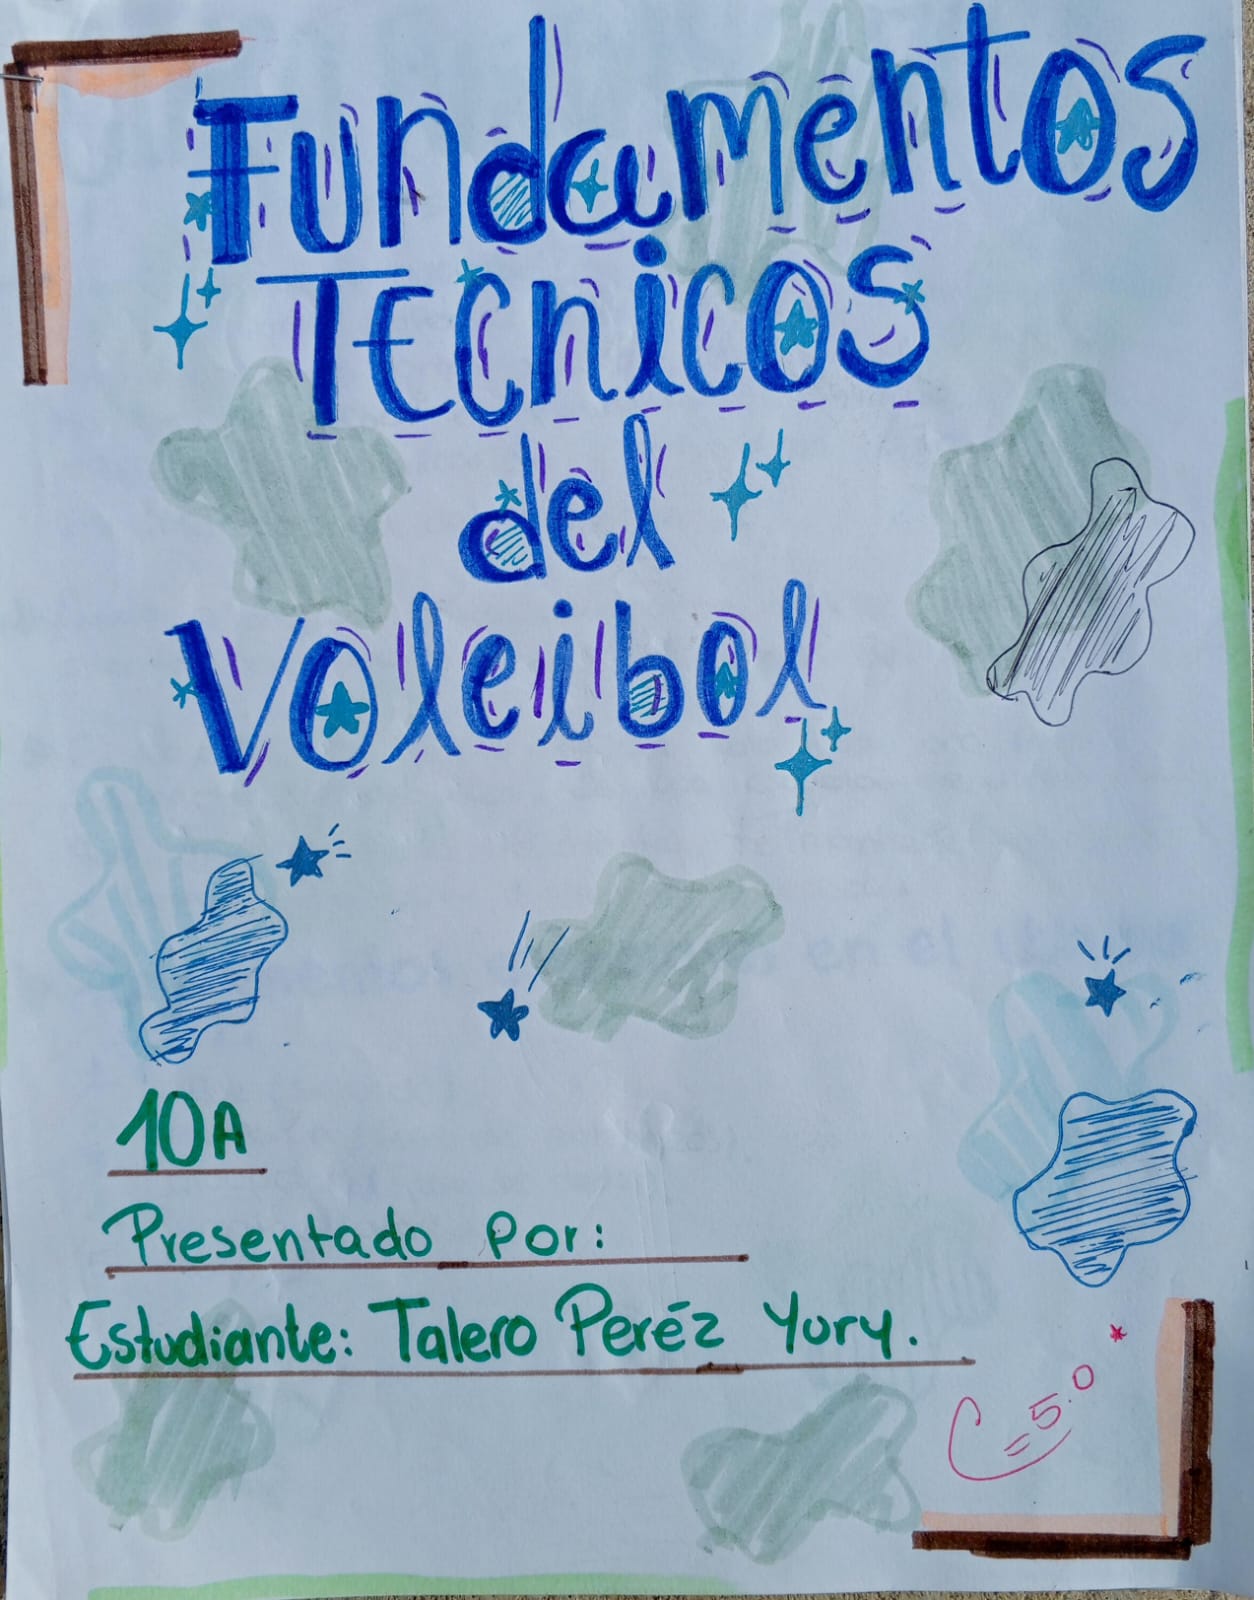 Fundamentos
TECNICOS
del
Voleibol
10A
Presentado por:
Estudiante: Talero Peréz Yury.
C=5.0